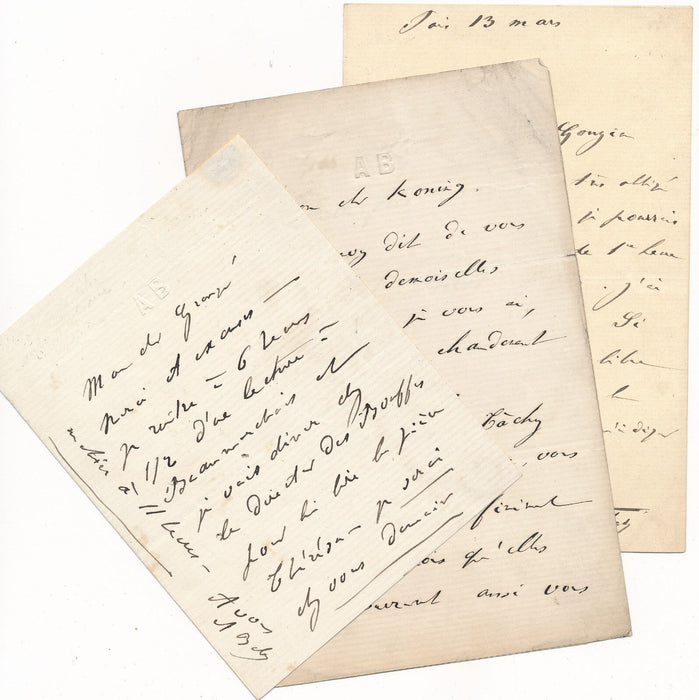 Paris 13 mars
Gouzien
très obligé
je pourrais
de 1re heure
j'ai
Si
libre
A B
mon cher Koning.
dit de vous
demoiselles
je vous ai,
chaudement
Tâchez
, vous
finissent
qu'elles
aussi vous
A B
Mon cher
Merci et excuses
je rentre à 6 heures
1/2 d'une lecture à
Beaumarchais et
je vais dîner chez
le directeur des Bouffes
pour lui lire la pièce
Thérésa - je serai
chez vous demain
à 11 heures -
A vous